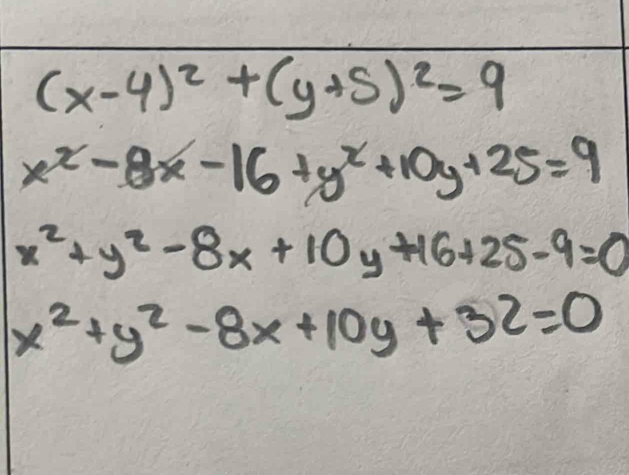 (x-4)² + (y+5)² = 9
x² - 8x - 16 + y² + 10y + 25 = 9
x² + y² - 8x + 10y + 16 + 25 - 9 = 0
x² + y² - 8x + 10y + 32 = 0